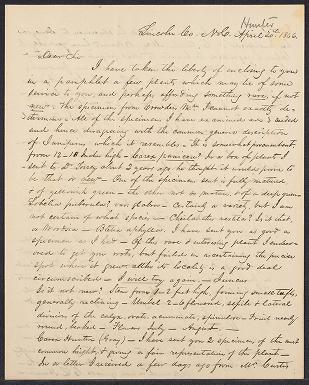 Hunter
Lincoln Co. N.C. April 20th. 1846.
Dear Sir
I have taken the liberty of enclosing to you
in a pamphlet a few plants which may be of some
service to you, and perhaps affording something rare, if not
new. The specimen from Crowders Mtn. I cannot exactly de-
termine. All of the specimens I have examined are seeded
and hence disagreeing with the common generic description
of Juniperus which it resembles. It is somewhat procumbent,
from 12 – 18 inches high – Carex In a box of plants I
sent to Dr. Torrey about 2 years ago he thought it would prove to
be that or new – One of the specimens sent is fully matured
& of yellowish green – the other not so mature, & of a deep green
Lobelia puberula? var glabra – Certainly a variety, but I am
not certain of what species – Cheilanthes vestita? Is it that,
or Woodsia – Bletia aphylla. I have sent you as good a
specimen as I had – Of this rare & interesting plant I endeav-
ored to get you roots, but failed in ascertaining the precise
spot where it grew, altho its locality is a good deal
circumscribed – I will try again –
Is it not new? Stem from foot high, forming small tufts,
generally reclining – Umbel 2–6 flowered, sepals & lateral
divisions of the calyx ovate, acuminate, – Fruit nearly
round, beaked – Flowers July – August, —
Carex Hunteri (Gray) – I have sent you 2 specimens of the most
common height, & giving a fair representation of the plant –
In a letter I received a few days ago from Mr. Curtis